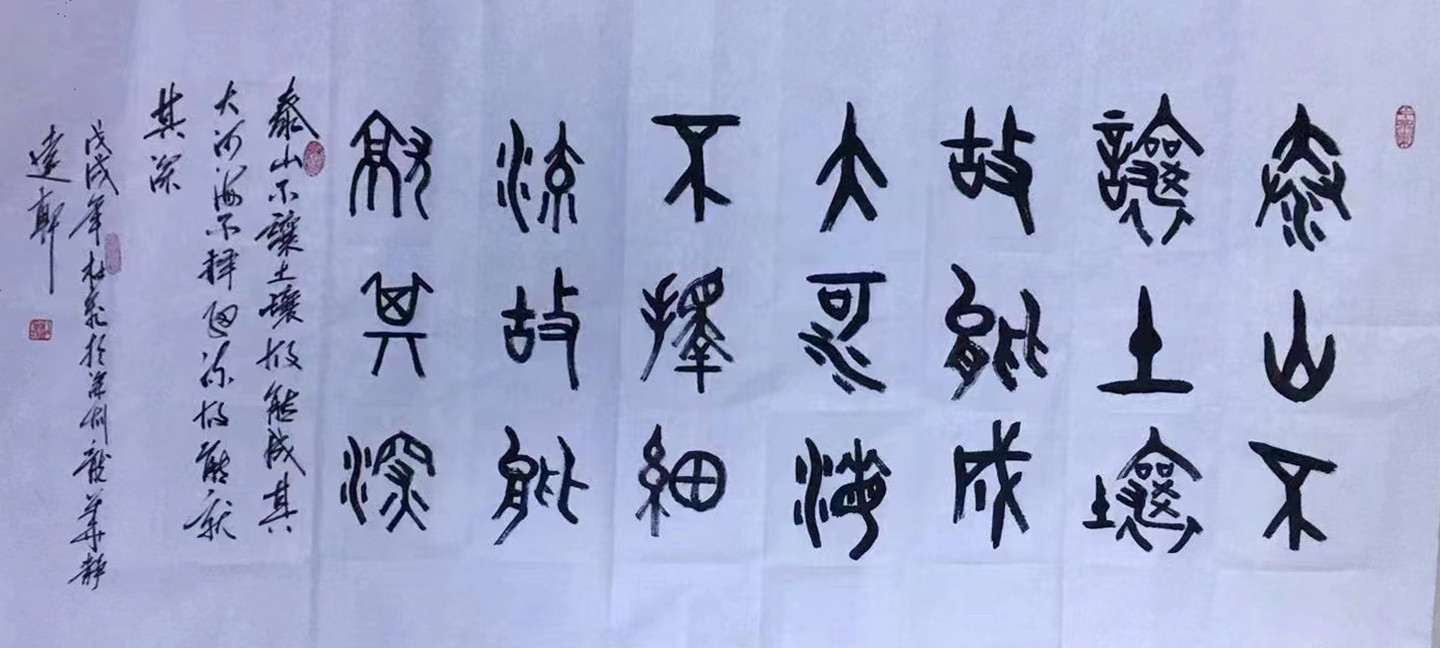 泰山不
讓土壤
故能成
大河海
不擇細
流故能
就其深
泰山不讓土壤故能成其
大河海不擇細流故能就
其深
戊戌年於深圳龍華靜
軒